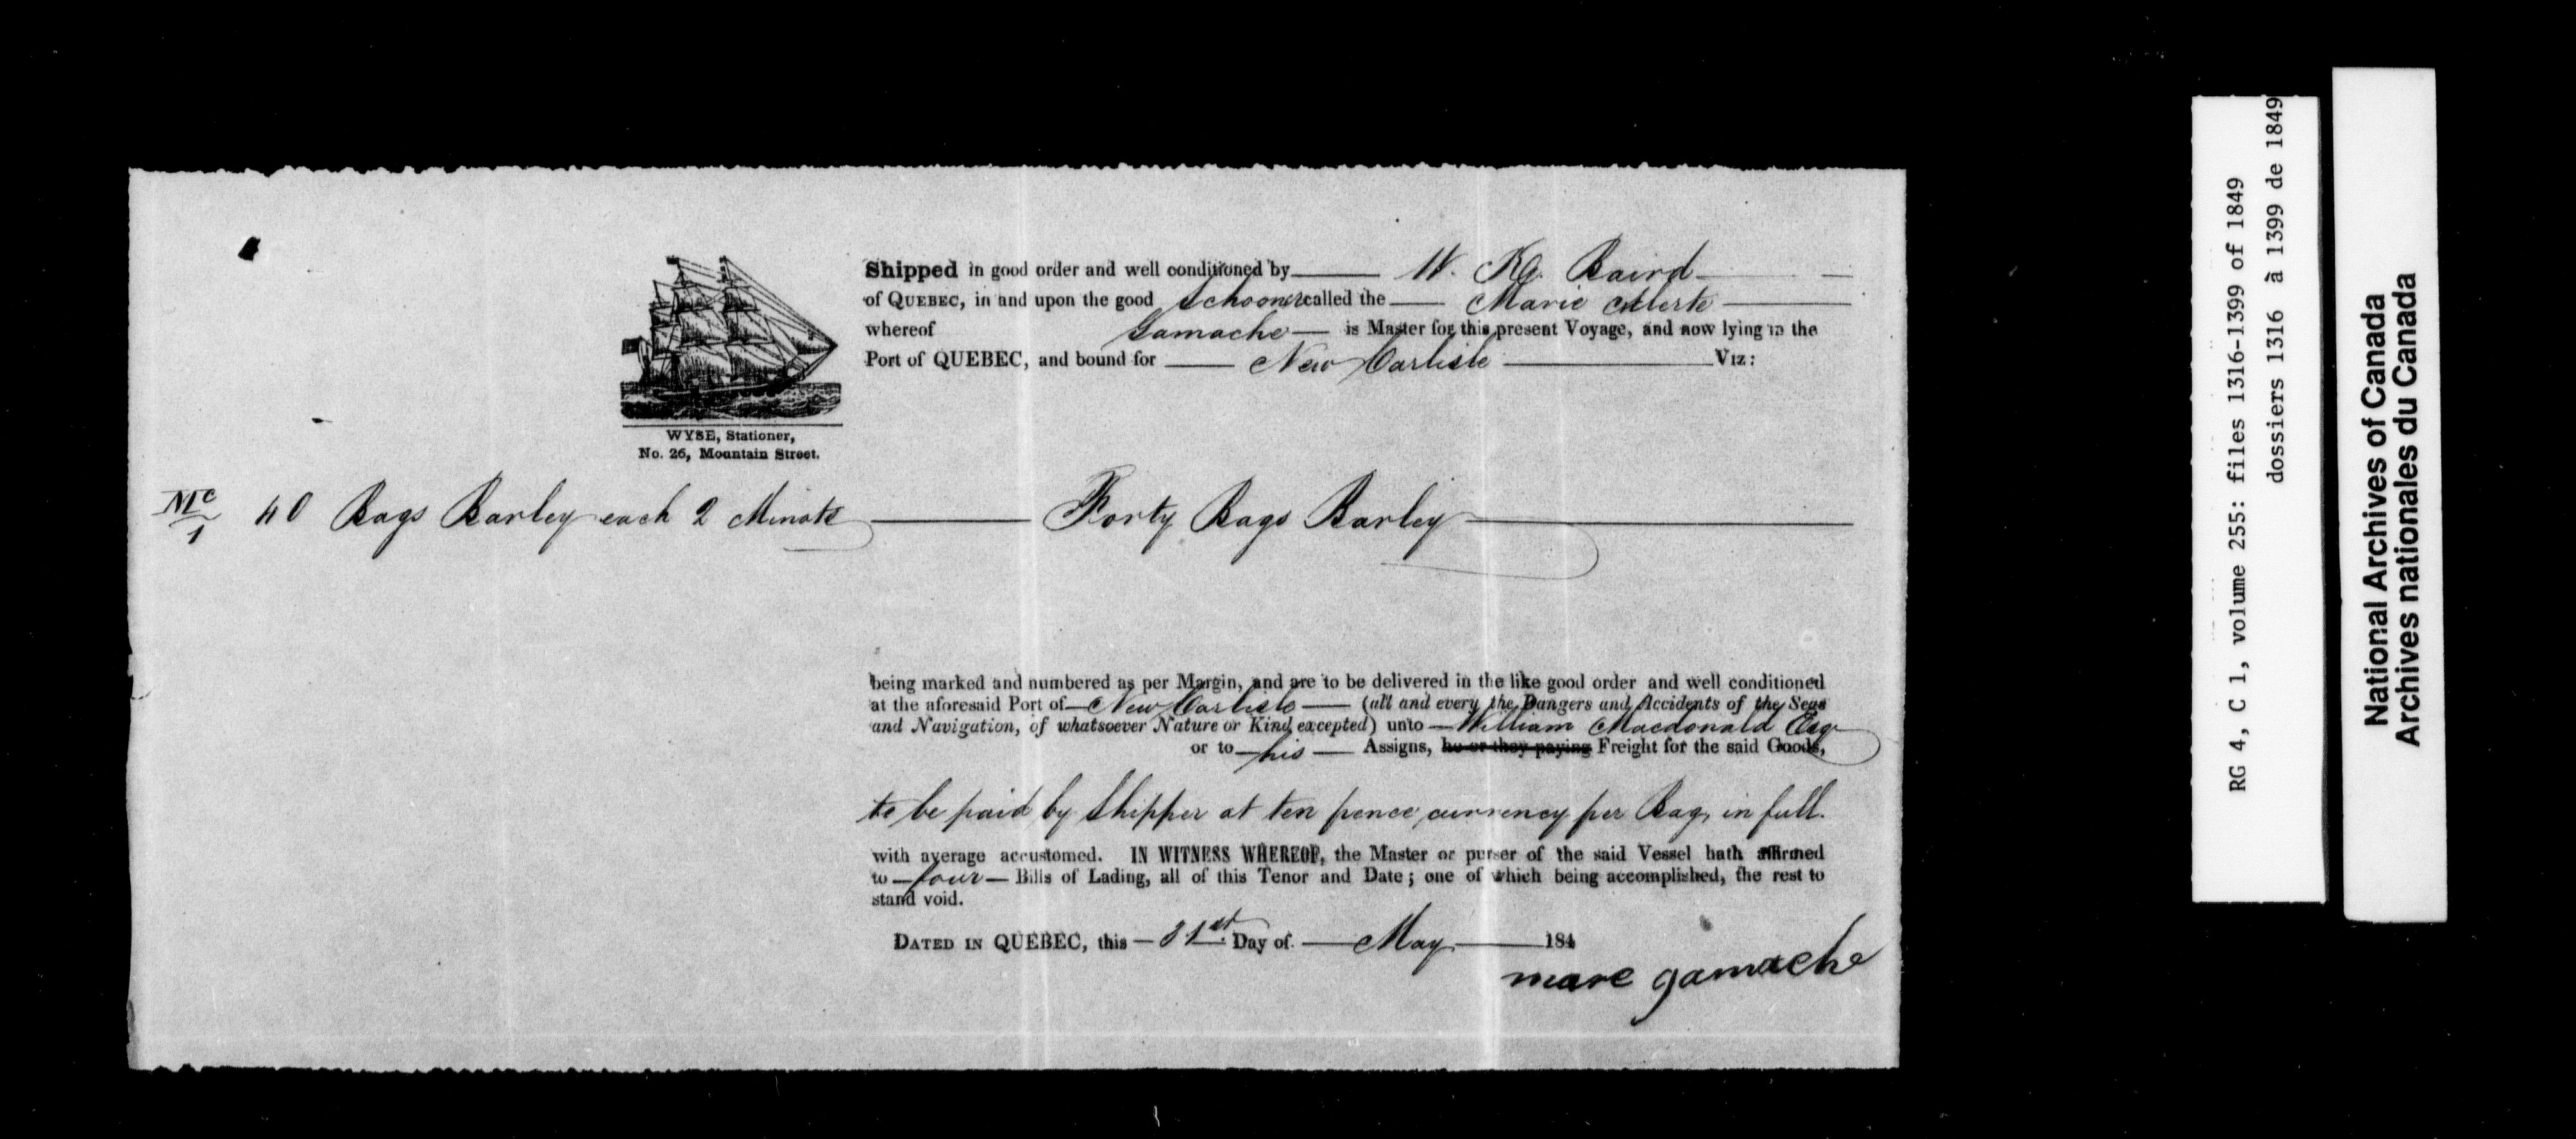 Shipped in good order and well conditioned by W. Baird
of QUEBEC, in and upon the good Schooner called the Marie
whereof Gamache is Master for this present Voyage, and now lying in the
Port of QUEBEC, and bound for New Carlisle VIZ:
WYSE, Stationer,
No. 26, Mountain Street.
Mc
1
40 Bags Barley each 2 Minots Forty Bags Barley
being marked and numbered as per Margin, and are to be delivered in the like good order and well conditioned
at the aforesaid Port of New Carlisle (all and every the Dangers and Accidents of the Seas
and Navigation, of whatsoever Nature or Kind excepted) unto William Macdonald Esq
or to his Assigns, he or they paying Freight for the said Goods,
to be paid by Shipper at ten pence currency per Bag, in full.
with average accustomed. IN WITNESS WHEREOF, the Master or purser of the said Vessel hath affirmed
to four Bills of Lading, all of this Tenor and Date; one of which being accomplished, the rest to
stand void.
DATED IN QUEBEC, this 31st. Day of May 184
marc gamache
RG 4, C 1, volume 255: files 1316-1399 of 1849
dossiers 1316 à 1399 de 1849
National Archives of Canada
Archives nationales du Canada